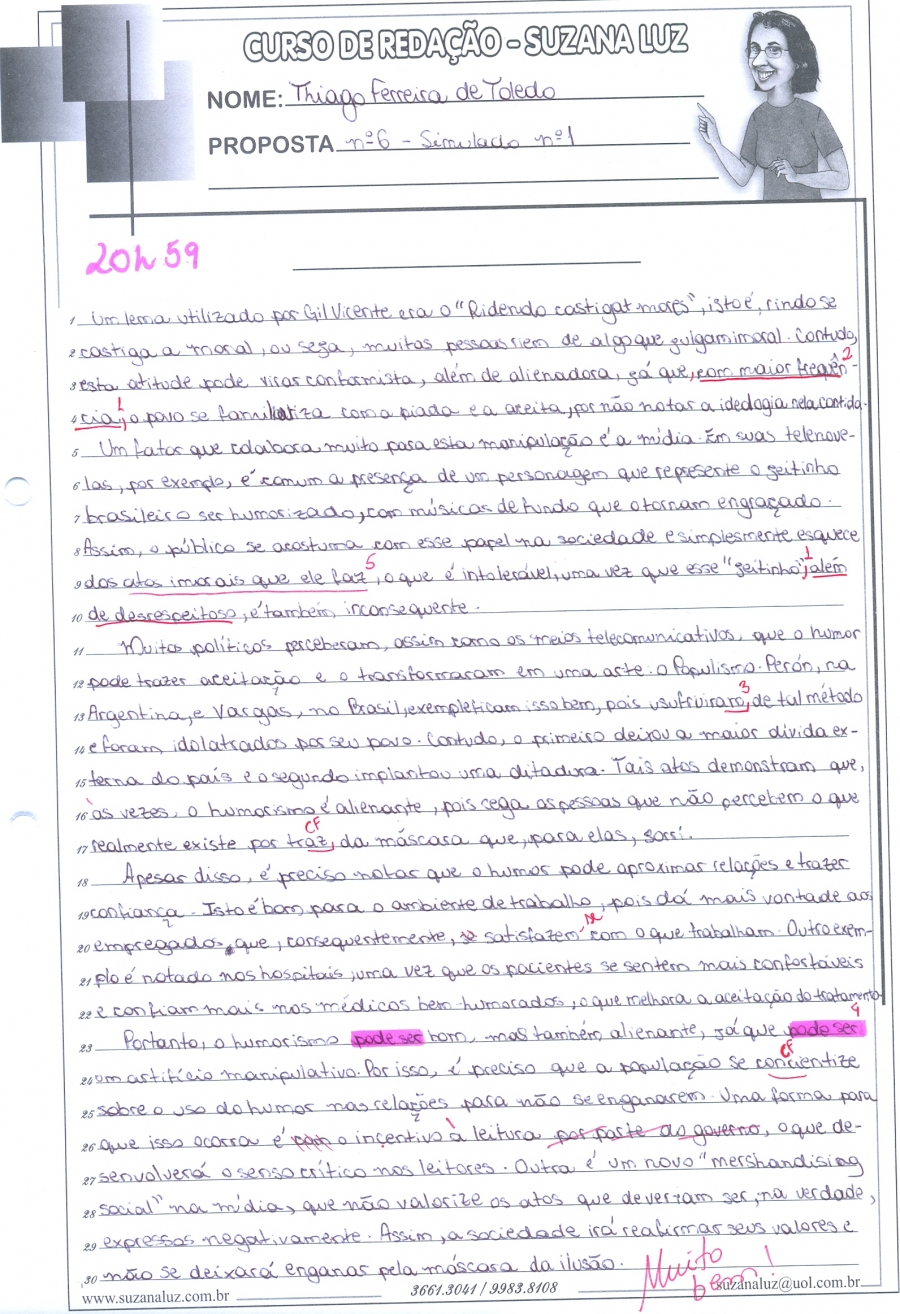 CURSO DE REDAÇÃO - SUZANA LUZ
NOME: Thiago Ferreira de Toledo
PROPOSTA nº 6 - Simulado nº 1
20h 59
1 Um lema utilizado por Gil Vicente era o "Ridendo castigat mores", isto é, rindo se
2 castiga a moral, ou seja, muitas pessoas riem de algo que julgam imoral. Contudo,
2
3 esta atitude pode virar conformista, além de alienadora, já que, com maior frequên-
1
4 cia, o povo se familiariza com a piada e a aceita, por não notar a ideologia nela contida.
5 Um fator que colabora muito para esta manipulação é a mídia. Em suas telenove-
6 las, por exemplo, é comum a presença de um personagem que represente o jeitinho
7 brasileiro ser humorizado, com músicas de fundo que o tornam engraçado.
8 Assim, o público se acostuma com esse papel na sociedade e simplesmente esquece
5 1
9 dos atos imorais que ele faz, o que é intolerável, uma vez que esse "jeitinho", além
10 de desrespeitoso, é também inconsequente.
11 Muitos políticos perceberam, assim como os meios telecomunicativos, que o humor
12 pode trazer aceitação e o transformaram em uma arte: o Populismo. Perón, na
3
13 Argentina, e Vargas, no Brasil, exemplificam isso bem, pois usufruiram, de tal método
14 e foram idolatrados por seu povo. Contudo, o primeiro deixou a maior dívida ex-
15 terna do país e o segundo implantou uma ditadura. Tais atos demonstram que,
16 às vezes, o humorismo é alienante, pois cega as pessoas que não percebem o que
CF
17 realmente existe por traz, da máscara que, para elas, sorri.
18 Apesar disso, é preciso notar que o humor pode aproximar relações e trazer
19 confiança. Isto é bom para o ambiente de trabalho, pois dá mais vontade aos
se
20 empregados que, consequentemente, se satisfazem com o que trabalham. Outro exem-
21 plo é notado nos hospitais, uma vez que os pacientes se sentem mais confortáveis
22 e confiam mais nos médicos bem humorados, o que melhora a aceitação do tratamento.
4
23 Portanto, o humorismo pode ser bom, mas também alienante, já que pode ser
CF
24 um artifício manipulativo. Por isso, é preciso que a população se concientize
25 sobre o uso do humor nas relações para não se enganarem. Uma forma para
26 que isso ocorra é o incentivo à leitura por parte do governo, o que de-
27 senvolverá o senso crítico nos leitores. Outra é um novo "mershandising
28 social" na mídia, que não valorize os atos que deveriam ser, na verdade,
29 expressos negativamente. Assim, a sociedade irá reafirmar seus valores e
30 não se deixará enganar pela máscara da ilusão.
Muito bem!
www.suzanaluz.com.br 3661.3041 / 9983.8108 suzanaluz@uol.com.br